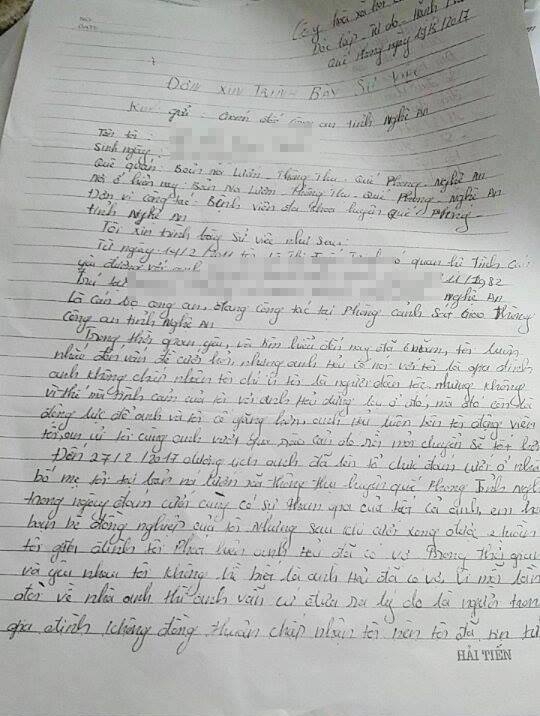 NO.
DATE
Cộng hòa xã hội
Độc lập - Tự do - Hạnh
Quế Phong ngày 19/5/2017
ĐƠN XIN TRÌNH BÀY SỰ VIỆC
Kính gửi: Giám đốc công an tỉnh Nghệ An
Tên tôi:
Sinh ngày:
Quê quán: Bản Na Lướm - Thông Thụ - Quế Phong - Nghệ An
Nơi ở hiện nay: Bản Na Lướm - Thông Thụ - Quế Phong - Nghệ An
Đơn vị công tác: Bệnh viện đa khoa huyện Quế Phong -
tỉnh Nghệ An
Tôi xin trình bày sự việc như sau:
Từ ngày 14/2/2011 tôi có quan hệ tình cảm
yêu đương với anh 11/1982
Trú tại Nghệ An
là cán bộ công an, đang công tác tại Phòng cảnh sát Giao thông
công an tỉnh Nghệ An
Trong thời gian yêu, và tìm hiểu đến nay đã 6 năm, tôi luôn
nhắc đến vấn đề cưới hỏi, nhưng anh Hải có nói với tôi là gia đình
anh không chấp nhận tôi chỉ vì tôi là người dân tộc nhưng không
vì thế mà tình cảm của tôi và anh Hải dừng lại ở đó, mà đó còn là
động lực để anh và tôi cố gắng hơn, anh Hải luôn bên tôi động viên
tôi, an ủi tôi cùng anh vượt qua rào cản đó rồi mọi chuyện sẽ tốt
Đến 27/2/2017 dương lịch anh đã lên tổ chức đám cưới ở nhà
bố mẹ tôi tại bản na lướm xã thông thụ huyện quế Phong tỉnh Nghệ
trong ngày đám cưới cũng có sự tham gia của tất cả anh, em họ
bạn bè đồng nghiệp của tôi. Nhưng sau khi cưới xong được 2 tuần
tôi gia đình tôi phát hiện anh Hải đã có vợ. Trong thời gian
và yêu nhau tôi không hề biết là anh Hải đã có vợ. Vì mỗi lần
đòi về nhà anh thì anh vẫn cứ đưa ra lý do là người trong
gia đình không đồng thuận chấp nhận tôi nên tôi đã tin
HẢI TIẾN